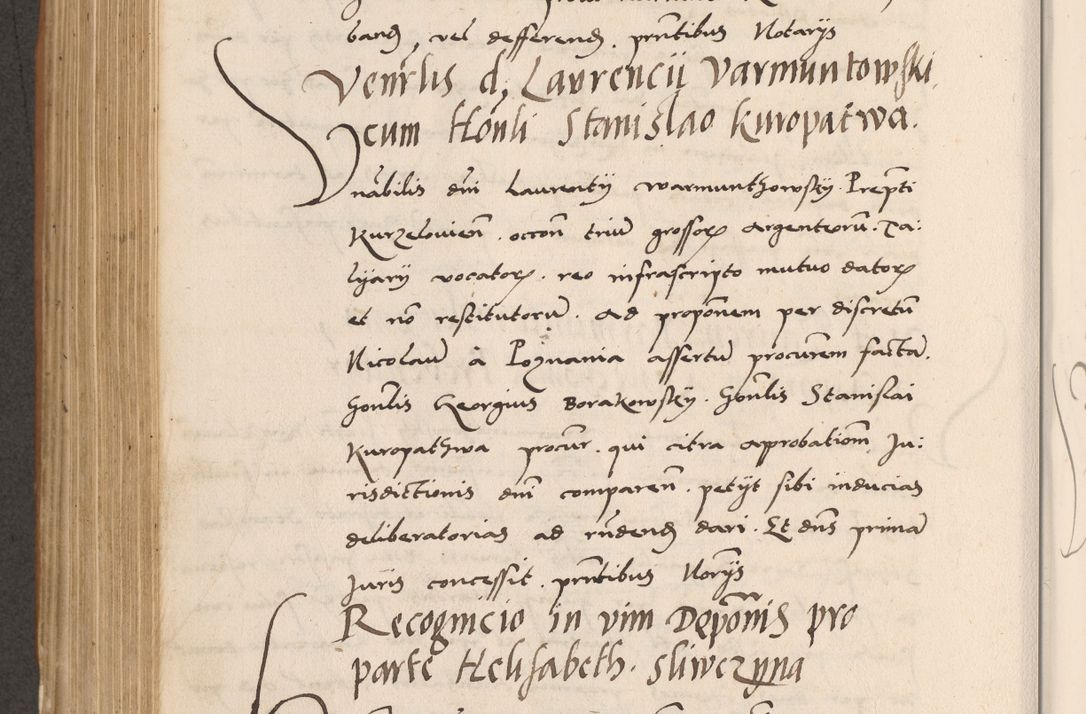 band, vel defferend, pn̄tibus Notarijs
Ven̄rlis d, Laurencij Varmuntowski
cum Hon̄li Stanislao kuropatwa.
n̄abilis dn̄i Laurentij warmunthowsky. Prep̄ti
Kurzelouien̄. occon̄ triū grossorꝝ argenteorū. Ta:
lijarij vocatorꝝ. reo infrascripto mutuo datorꝝ
et nō restitutorū. Ad propon̄em per discretū
Nicolaū à Poznania assertū procur̄em factā.
hon̄lis Georgius Borakowsky. hon̄lis Stanislai
Kuropathwa procur̄. qui citra aprobatiōm Ju:
risdictionis dn̄i comparen̄. petijt sibi inducias
deliberatorias ad rn̄dend dari. Et dn̄s primā
Juris concessit. pn̄tibus Norijs
Recognicio in vim Deponīs pro
parte Helisabeth. sliwczyna